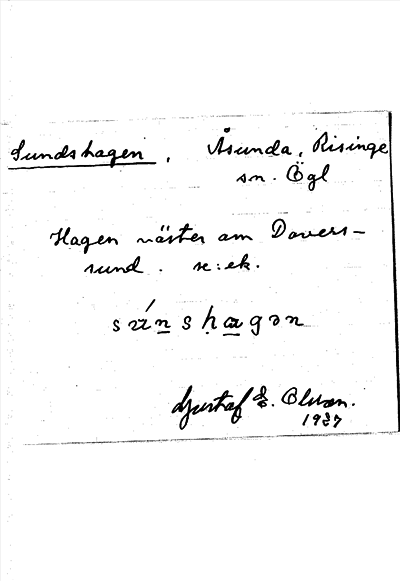 Sundshagen, Åsunda, Risinge
sn. Ögl
Hagen väster om Davers-
sund. se: ek.
Gustaf E. Olson.
1927